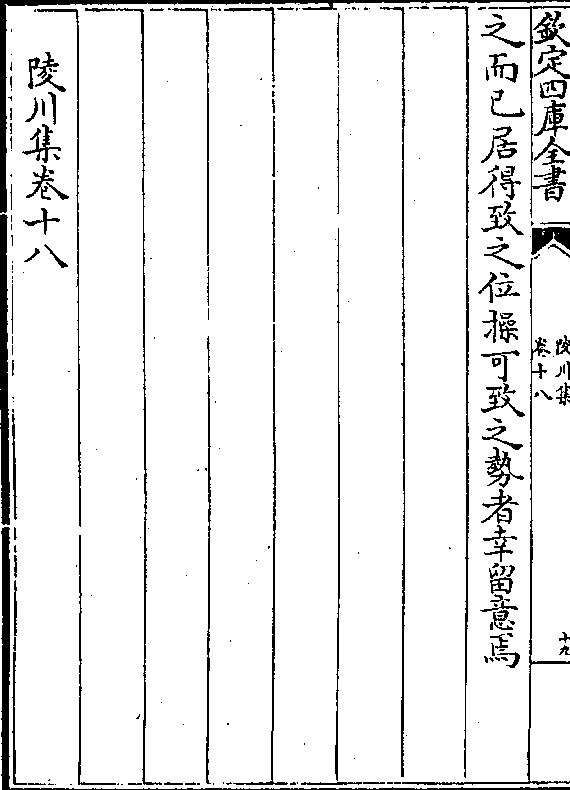 欽定四庫全書
陵川集
卷十八
十九
之而已居得致之位操可致之勢者幸留意焉
陵川集卷十八